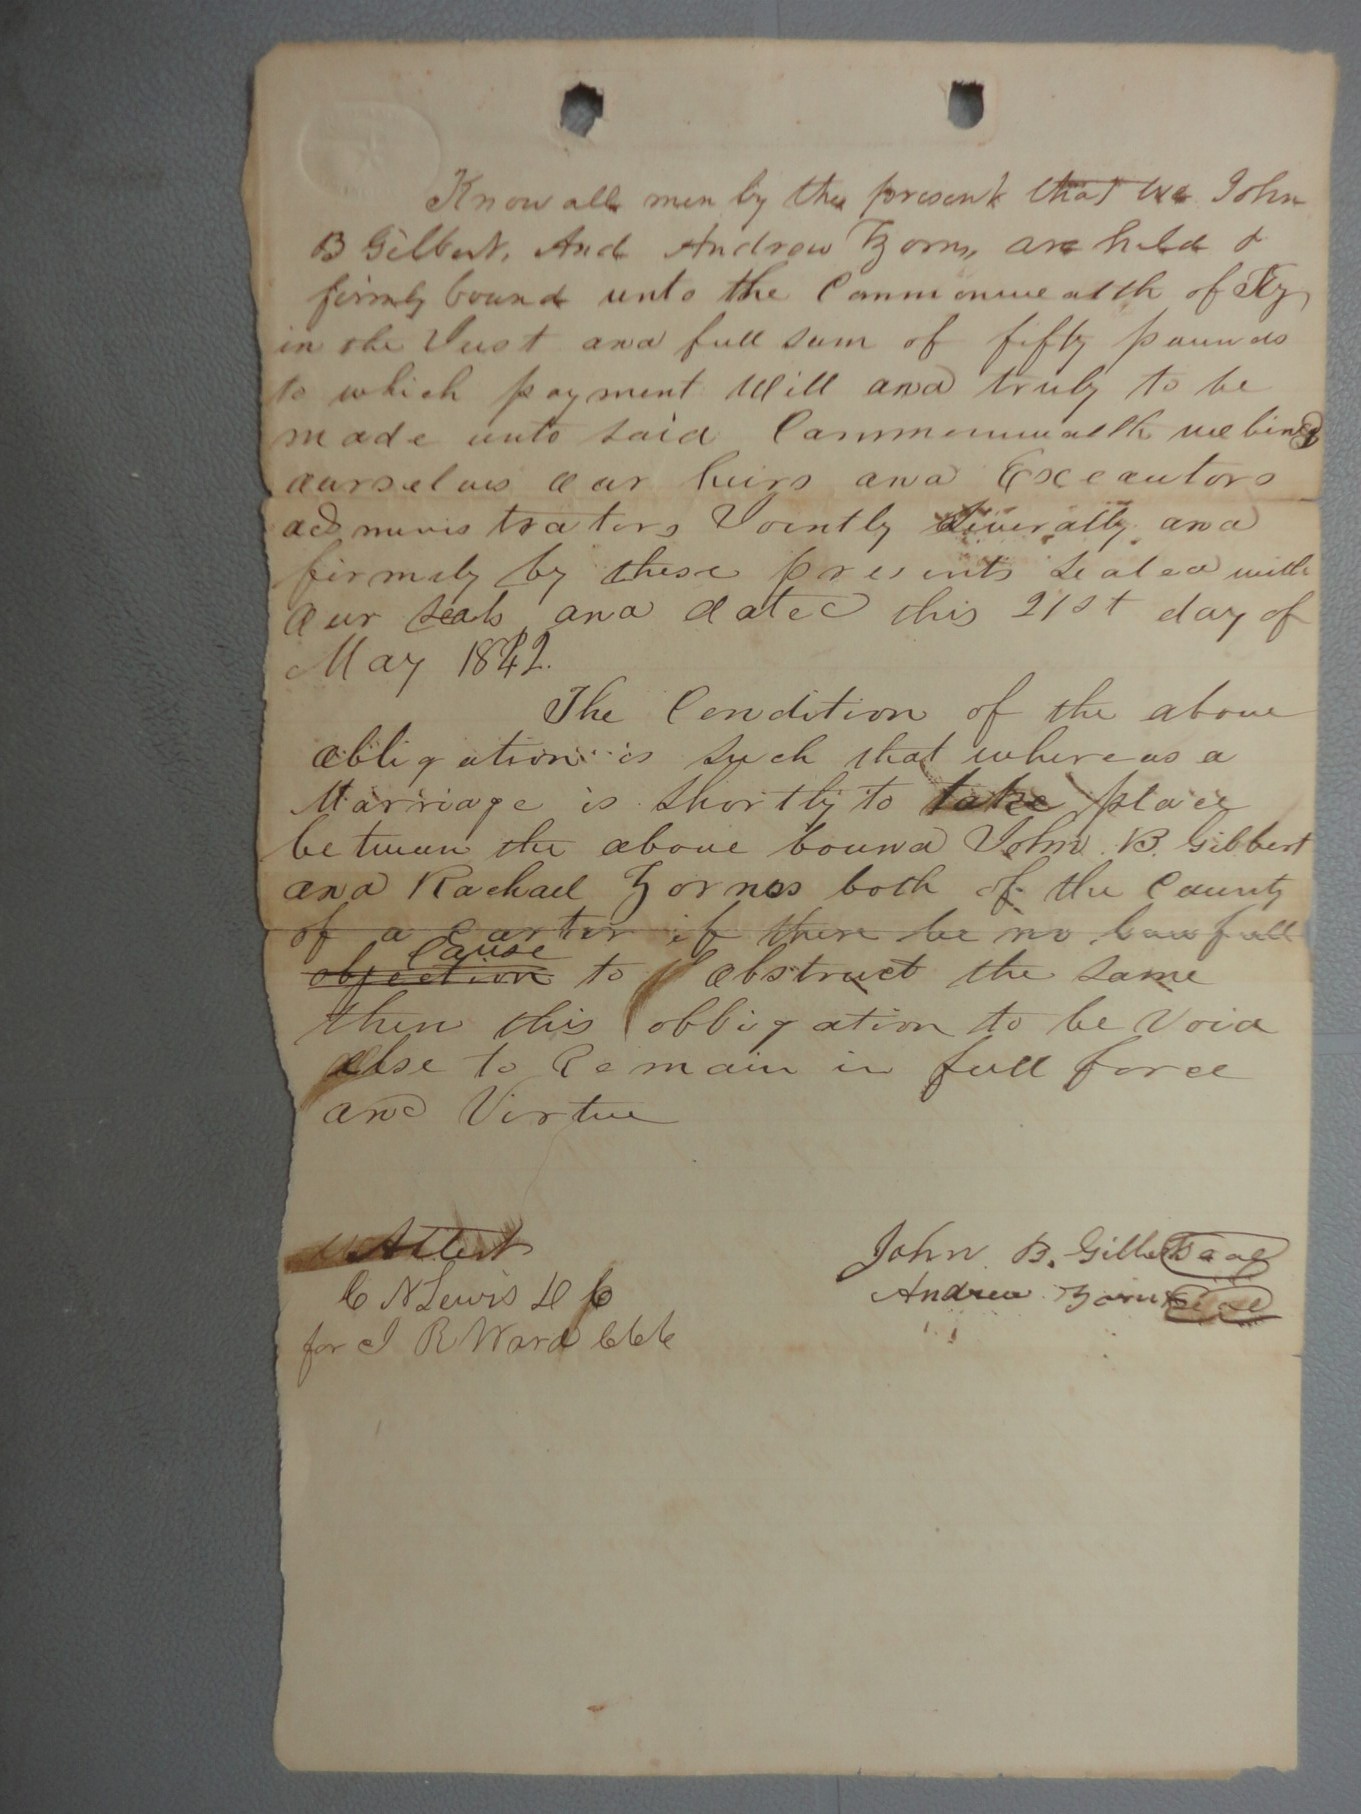 Know all men by the present that we John
B Gilbert, And Andrew Zorns, are held &
firmly bound unto the Commonwealth of Ky,
in the Just and full sum of fifty pounds
to which payment Well and truly to be
made unto said Commonwealth we bind
ourselves our heirs and Execautors
administrators Jointly Severally and
firmly by these presents sealed with
our seals and dated this 21st day of
May 1842.
The Condition of the above
obligation is such that whereas a
Marriage is shortly to take place
between the above bound John B. Gilbert
and Rachael Zornes both of the County
of a Carter if there be no lawfull
Cause
objection to obstruct the same
then this obbigation to be void
else to Remain in full force
and Virtue
Attest
C N Lewis D C
for J R Ward C C C
John B. Gilbert Seal
Andrew Zorns Seal